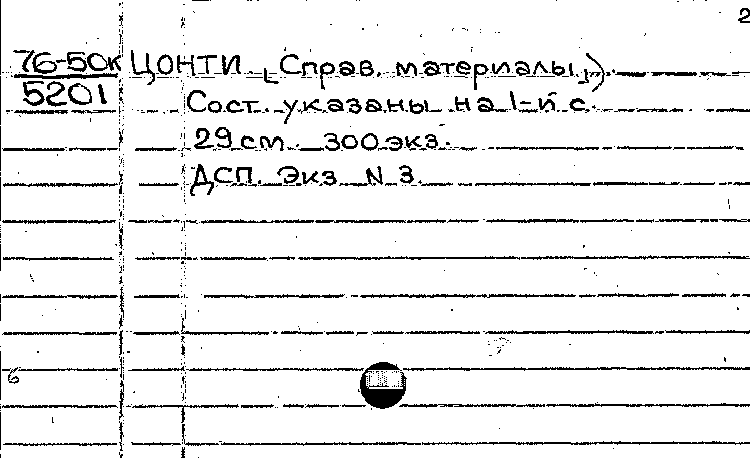 2
76-50к ЦОНТИ. [Справ. материалы]).
5201 Сост. указаны на 1-й с.
29 см. 300 экз.
ДСП. Экз N 3.
6